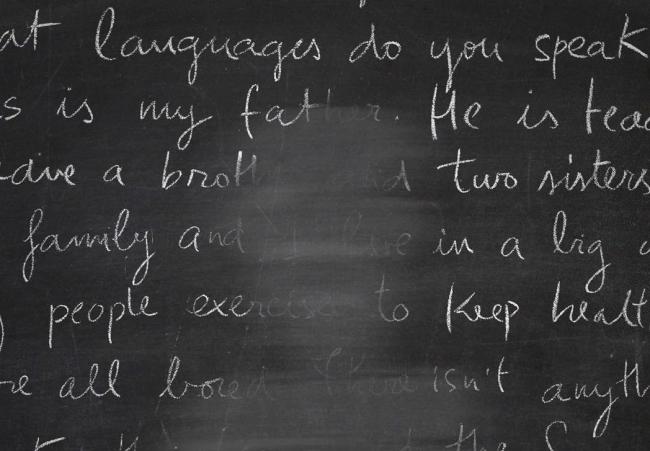 at languages do you speak
s is my father. He is teac
eave a broth and two sisters
family and I live in a big
people exercise to keep healt
re all bored There isn't anyth
the